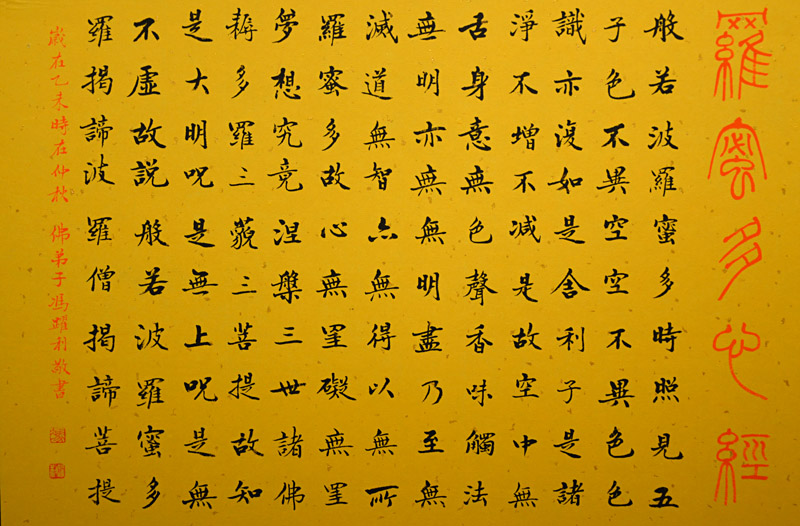 羅蜜多心經
般若波羅蜜多時照見五
子色不異空空不異色色
識亦復如是舍利子是諸
淨不增不减是故空中無
舌身意無色聲香味觸法
無明亦無無明盡乃至無
滅道無智亦無得以無所
羅蜜多故心無罣礙無罣
夢想究竟涅槃三世諸佛
耨多羅三藐三菩提故知
是大明咒是無上咒是無
不虛故說般若波羅蜜多
羅揭諦波羅僧揭諦菩提
歲在乙未時在仲秋 佛弟子馮耀利敬書